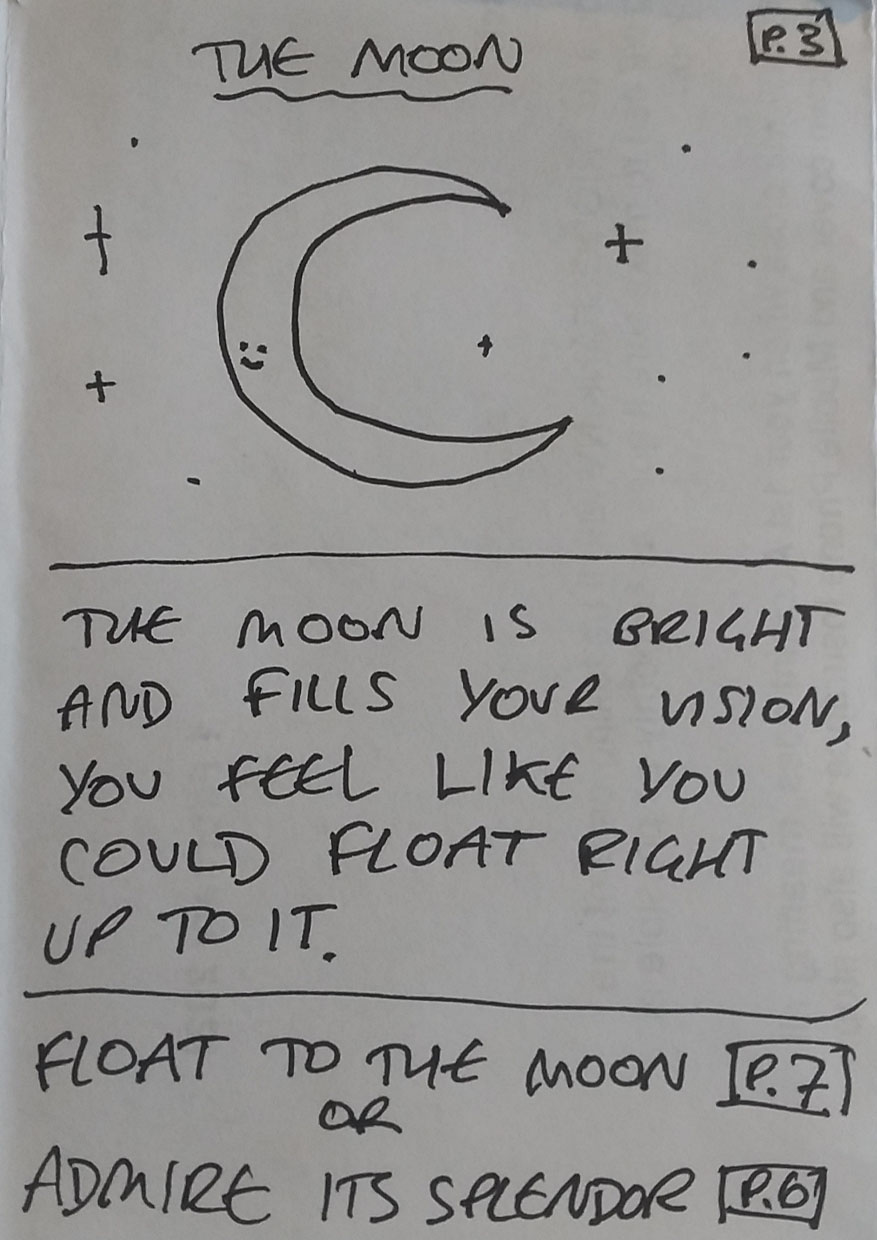 THE MOON
P.3
THE MOON IS BRIGHT
AND FILLS YOUR VISION,
YOU FEEL LIKE YOU
COULD FLOAT RIGHT
UP TO IT.
FLOAT TO THE MOON P.7
OR
ADMIRE ITS SPLENDOR P.6